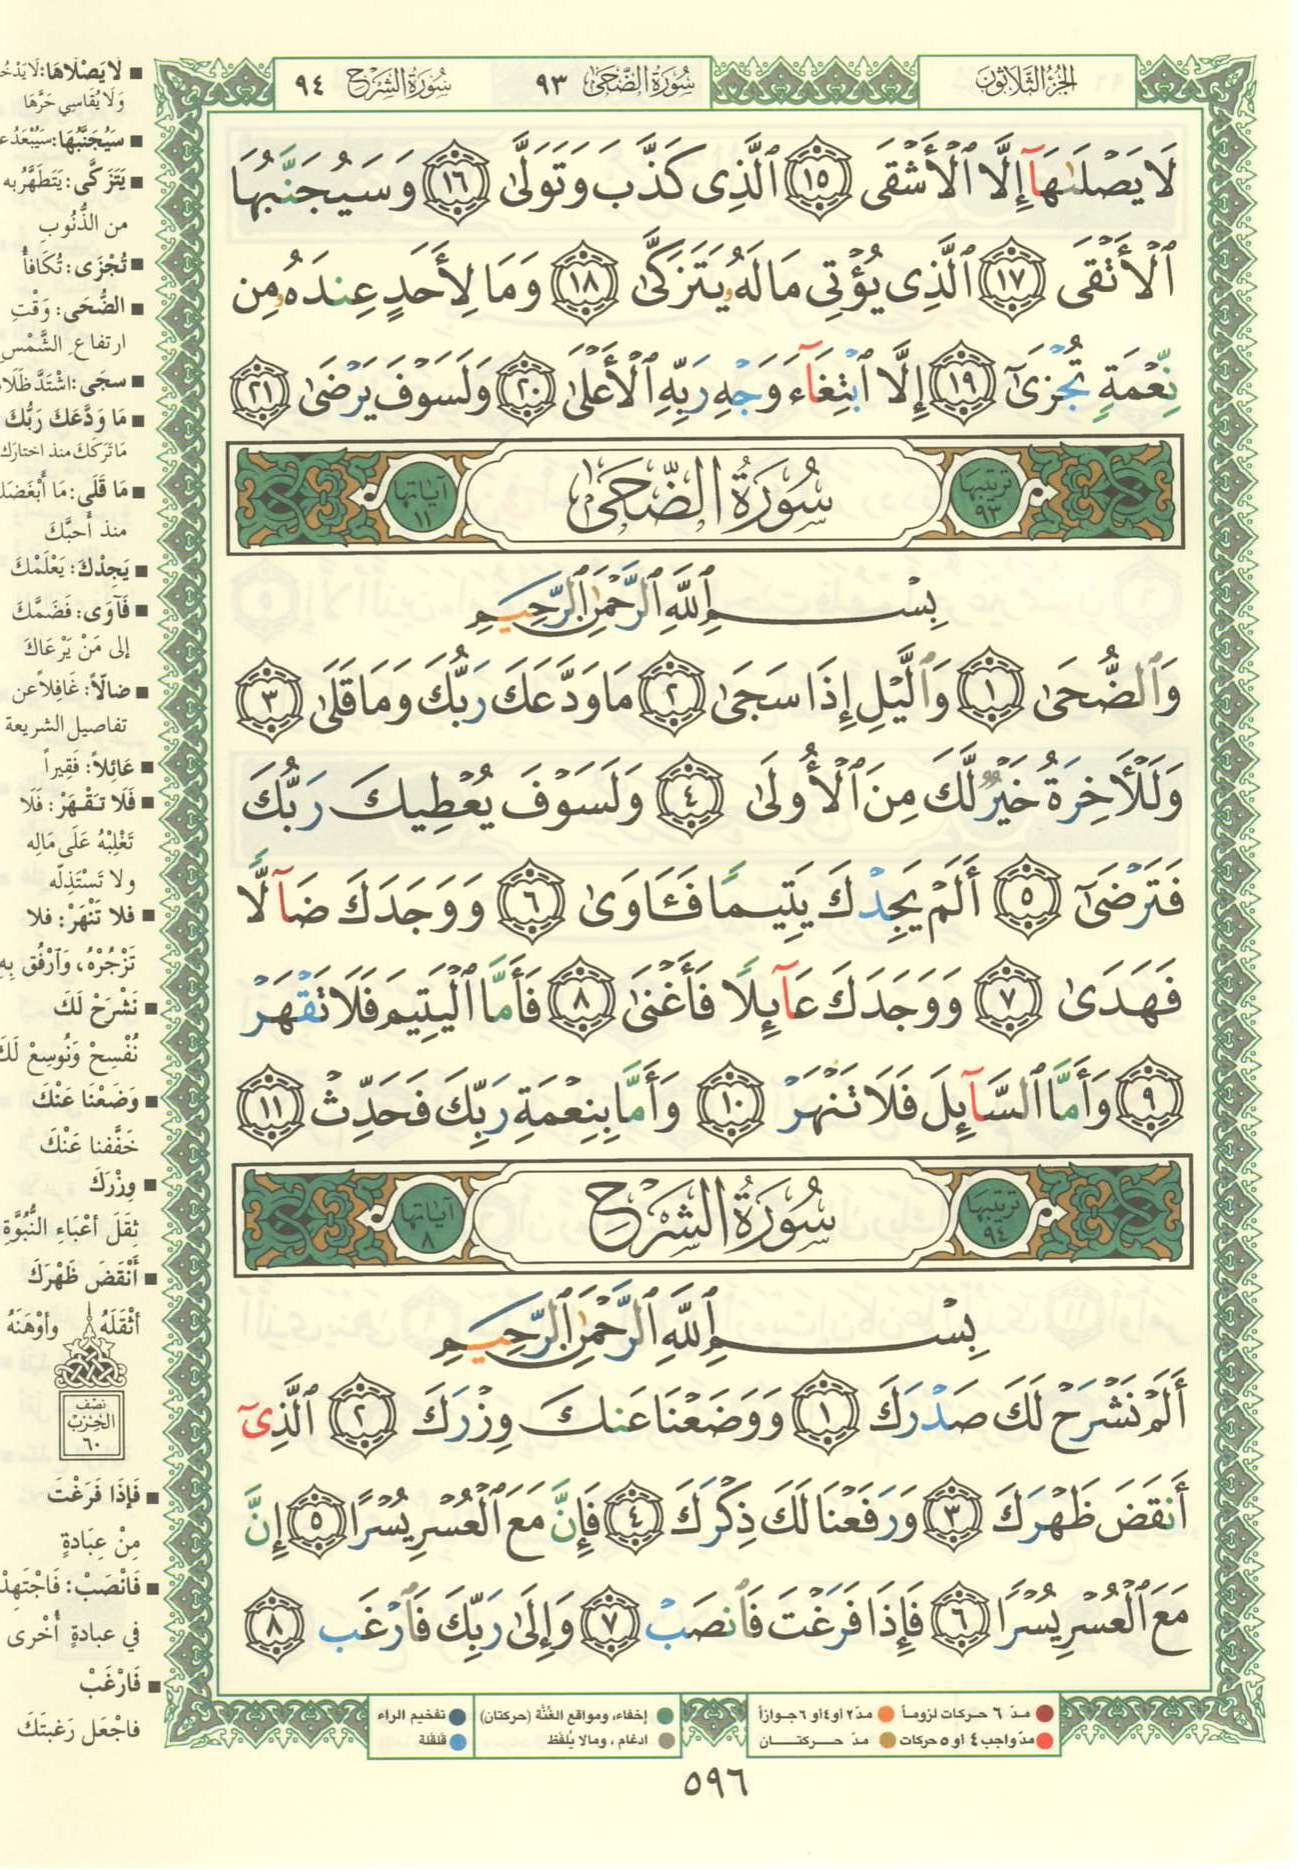 الجزء الثلاثون
سُورَةُ الضُّحَىٰ ٩٣
سُورَةُ الشَّرْحِ ٩٤
لَا يَصْلَىٰهَآ إِلَّا ٱلْأَشْقَى ١٥ ٱلَّذِى كَذَّبَ وَتَوَلَّىٰ ١٦ وَسَيُجَنَّبُهَا
ٱلْأَتْقَى ١٧ ٱلَّذِى يُؤْتِى مَالَهُۥ يَتَزَكَّىٰ ١٨ وَمَا لِأَحَدٍ عِندَهُۥ مِن
نِّعْمَةٍ تُجْزَىٰٓ ١٩ إِلَّا ٱبْتِغَآءَ وَجْهِ رَبِّهِ ٱلْأَعْلَىٰ ٢٠ وَلَسَوْفَ يَرْضَىٰ ٢١
ترتيبها ٩٣ سُورَةُ الضُّحَىٰ آياتها ١١
بِسْمِ ٱللَّهِ ٱلرَّحْمَٰنِ ٱلرَّحِيمِ
وَٱلضُّحَىٰ ١ وَٱلَّيْلِ إِذَا سَجَىٰ ٢ مَا وَدَّعَكَ رَبُّكَ وَمَا قَلَىٰ ٣
وَلَلْأَخِرَةُ خَيْرٌ لَّكَ مِنَ ٱلْأُولَىٰ ٤ وَلَسَوْفَ يُعْطِيكَ رَبُّكَ
فَتَرْضَىٰٓ ٥ أَلَمْ يَجِدْكَ يَتِيمًا فَـَٔاوَىٰ ٦ وَوَجَدَكَ ضَآلًّا
فَهَدَىٰ ٧ وَوَجَدَكَ عَآئِلًا فَأَغْنَىٰ ٨ فَأَمَّا ٱلْيَتِيمَ فَلَا تَقْهَرْ
٩ وَأَمَّا ٱلسَّآئِلَ فَلَا تَنْهَرْ ١٠ وَأَمَّا بِنِعْمَةِ رَبِّكَ فَحَدِّثْ ١١
ترتيبها ٩٤ سُورَةُ الشَّرْحِ آياتها ٨
بِسْمِ ٱللَّهِ ٱلرَّحْمَٰنِ ٱلرَّحِيمِ
أَلَمْ نَشْرَحْ لَكَ صَدْرَكَ ١ وَوَضَعْنَا عَنكَ وِزْرَكَ ٢ ٱلَّذِىٓ
أَنقَضَ ظَهْرَكَ ٣ وَرَفَعْنَا لَكَ ذِكْرَكَ ٤ فَإِنَّ مَعَ ٱلْعُسْرِ يُسْرًا ٥ إِنَّ
مَعَ ٱلْعُسْرِ يُسْرًا ٦ فَإِذَا فَرَغْتَ فَٱنصَبْ ٧ وَإِلَىٰ رَبِّكَ فَٱرْغَب ٨
لَا يَصْلَاهَا:
وَلَا يُقَاسِي حَرَّهَا
سَيُجَنَّبُهَا:
يَتَزَكَّى: يَتَطَهَّرُ به
من الذُّنُوبِ
تُجْزَى: تُكَافَأُ
الضُّحَى: وَقْتِ
ارتفاع الشَّمْسِ
سجَى: اشْتَدَّ
مَا وَدَّعَكَ رَبُّكَ
مَا تَرَكَكَ منذ اختارك
مَا قَلَى: مَا
منذ أَحبَّكَ
يَجِدْكَ: يَعْلَمْكَ
فَآوَى: فَضَمَّكَ
إلى مَنْ يَرْعَاكَ
ضالّاً: غَافِلاً عن
تفاصيل الشريعة
عَائِلاً: فَقِيراً
فَلَا تَقْهَرْ: فَلَا
تَغْلِبْهُ عَلَى مَالِه
ولا تَسْتَذِلّه
فلا تَنْهَرْ: فلا
تَزْجُرْهُ، وَارْفُق بِهِ
نَشْرَحْ لَكَ
نُفْسِحْ وَنُوسِعْ لَكَ
وَضَعْنَا عَنْكَ
خَفَّفنا عَنْكَ
وِزْرَكَ
ثِقَلَ أَعْبَاءِ النُّبُوَّةِ
أَنْقَضَ ظَهْرَكَ
أَثْقَلَهُ وأَوْهَنَهُ
نصف
الحزب
٦٠
فَإِذَا فَرَغْتَ
مِنْ عِبَادةٍ
فَانْصَبْ: فَاجْتَهِدْ
في عبادةٍ أُخْرى
فَارْغَبْ
فاجْعَل رَغبتَكَ
مدّ ٦ حركات لزوماً مدّ ٢ أو ٤ أو ٦ جوازاً
مدّ واجب ٤ أو ٥ حركات مدّ حركتان
إخفاء، ومواقع الغُنَّة (حركتان)
ادغام، وما لا يُلفظ
تفخيم الراء
قلقلة
٥٩٦